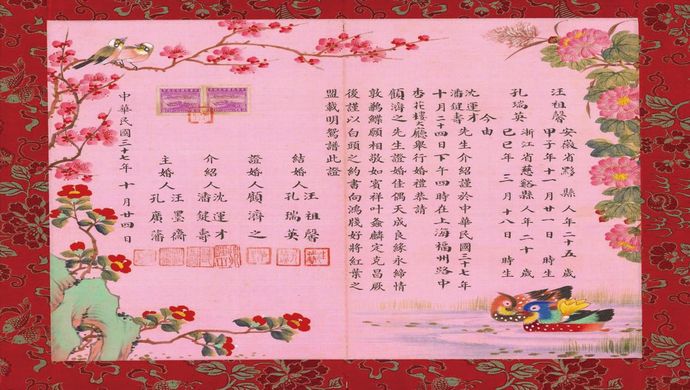 汪祖馨 安徽省黟縣人年二十五歲
甲子年十一月廿一日 時生
孔瑞英 浙江省慈谿縣人年二十歲
己巳年三月十八日 時生
今由
沈運才
潘健壽 先生介紹謹於中華民國三十七年
十月二十四日下午四時在上海福州路中
杏花樓大廳舉行婚禮恭請
顧濟之先生證婚佳偶天成良緣永締情
敦鶼鰈願相敬如賓祥叶螽麟定克昌厥
後謹以白頭之約書向鴻牋好將紅葉之
盟載明鴛譜此證
結婚人 汪祖馨
孔瑞英
證婚人 顧濟之
介紹人 沈運才
潘健壽
主婚人 汪墨齋
孔廣蕃
中華民國三十七年十月廿四日